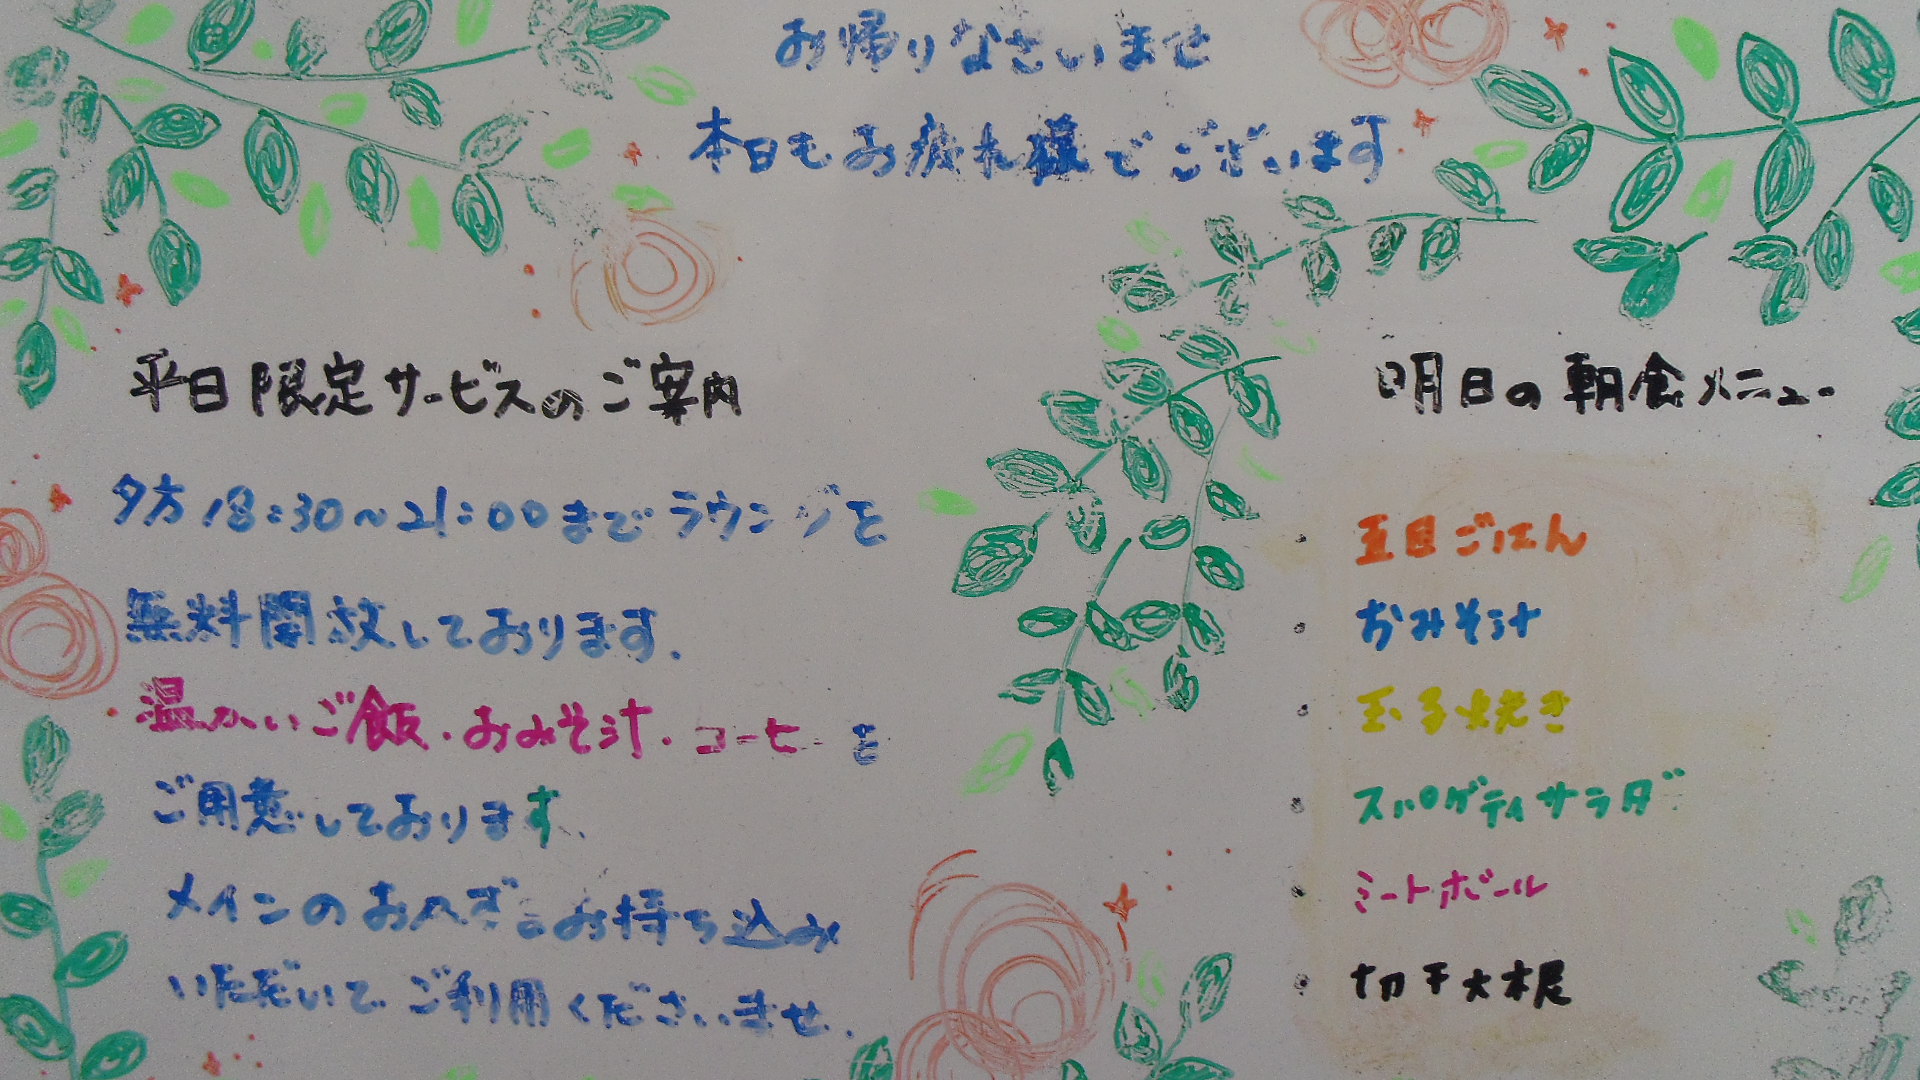 お帰りなさいませ
本日もお疲れ様でございます
平日限定サービスのご案内
夕方18:30〜21:00までラウンジを
無料開放しております.
温かいご飯・おみそ汁・コーヒーを
ご用意しております.
メインのおかずをお持ち込み
いただいてご利用くださいませ.
明日の朝食メニュー
・五目ごはん
・おみそ汁
・玉子焼き
・スパゲティサラダ
・ミートボール
・切干大根